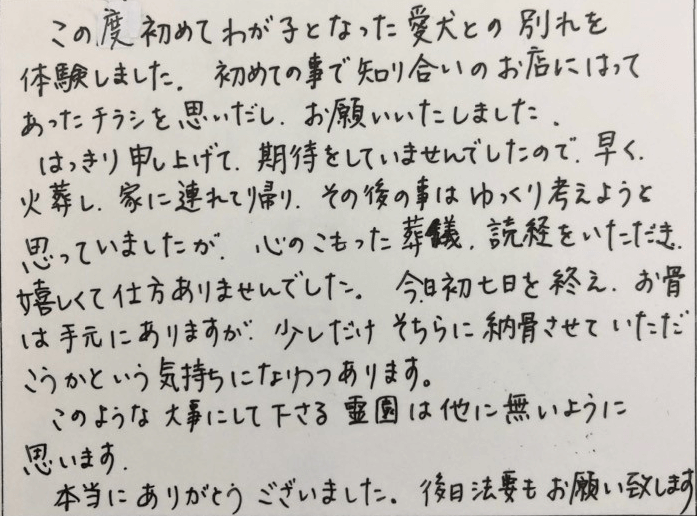 この度初めてわが子となった愛犬との別れを
体験しました。初めての事で知り合いのお店にはって
あったチラシを思いだし、お願いいたしました、
はっきり申し上げて、期待をしていませんでしたので、早く、
火葬し、家に連れて帰り、その後の事はゆっくり考えようと
思っていましたが、心のこもった葬儀、読経をいただき、
嬉しくて仕方ありませんでした。今日初七日を終え、お骨
は手元にありますが、少しだけそちらに納骨させていただ
こうかという気持ちになりつつあります。
このような大事にして下さる霊園は他に無いように
思います、
本当にありがとうございました。後日法要もお願い致します